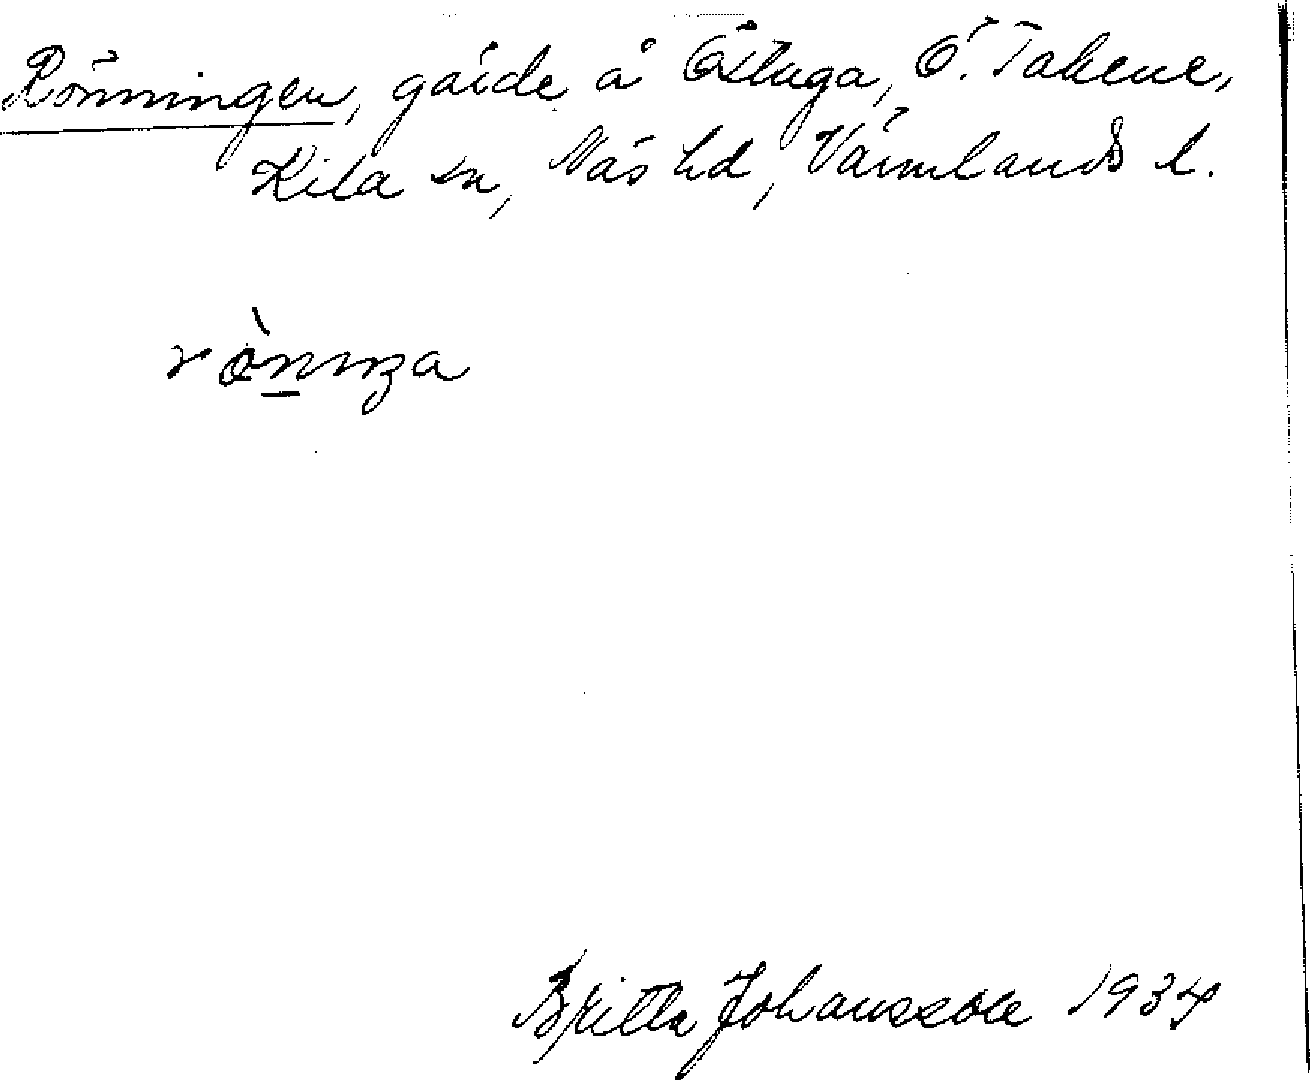 Rönningen, gärde å Östuga, Ö. Takene,
Kila sn, Näs hd, Värmlands l.
rònnιŋa
Britta Johansson 1934